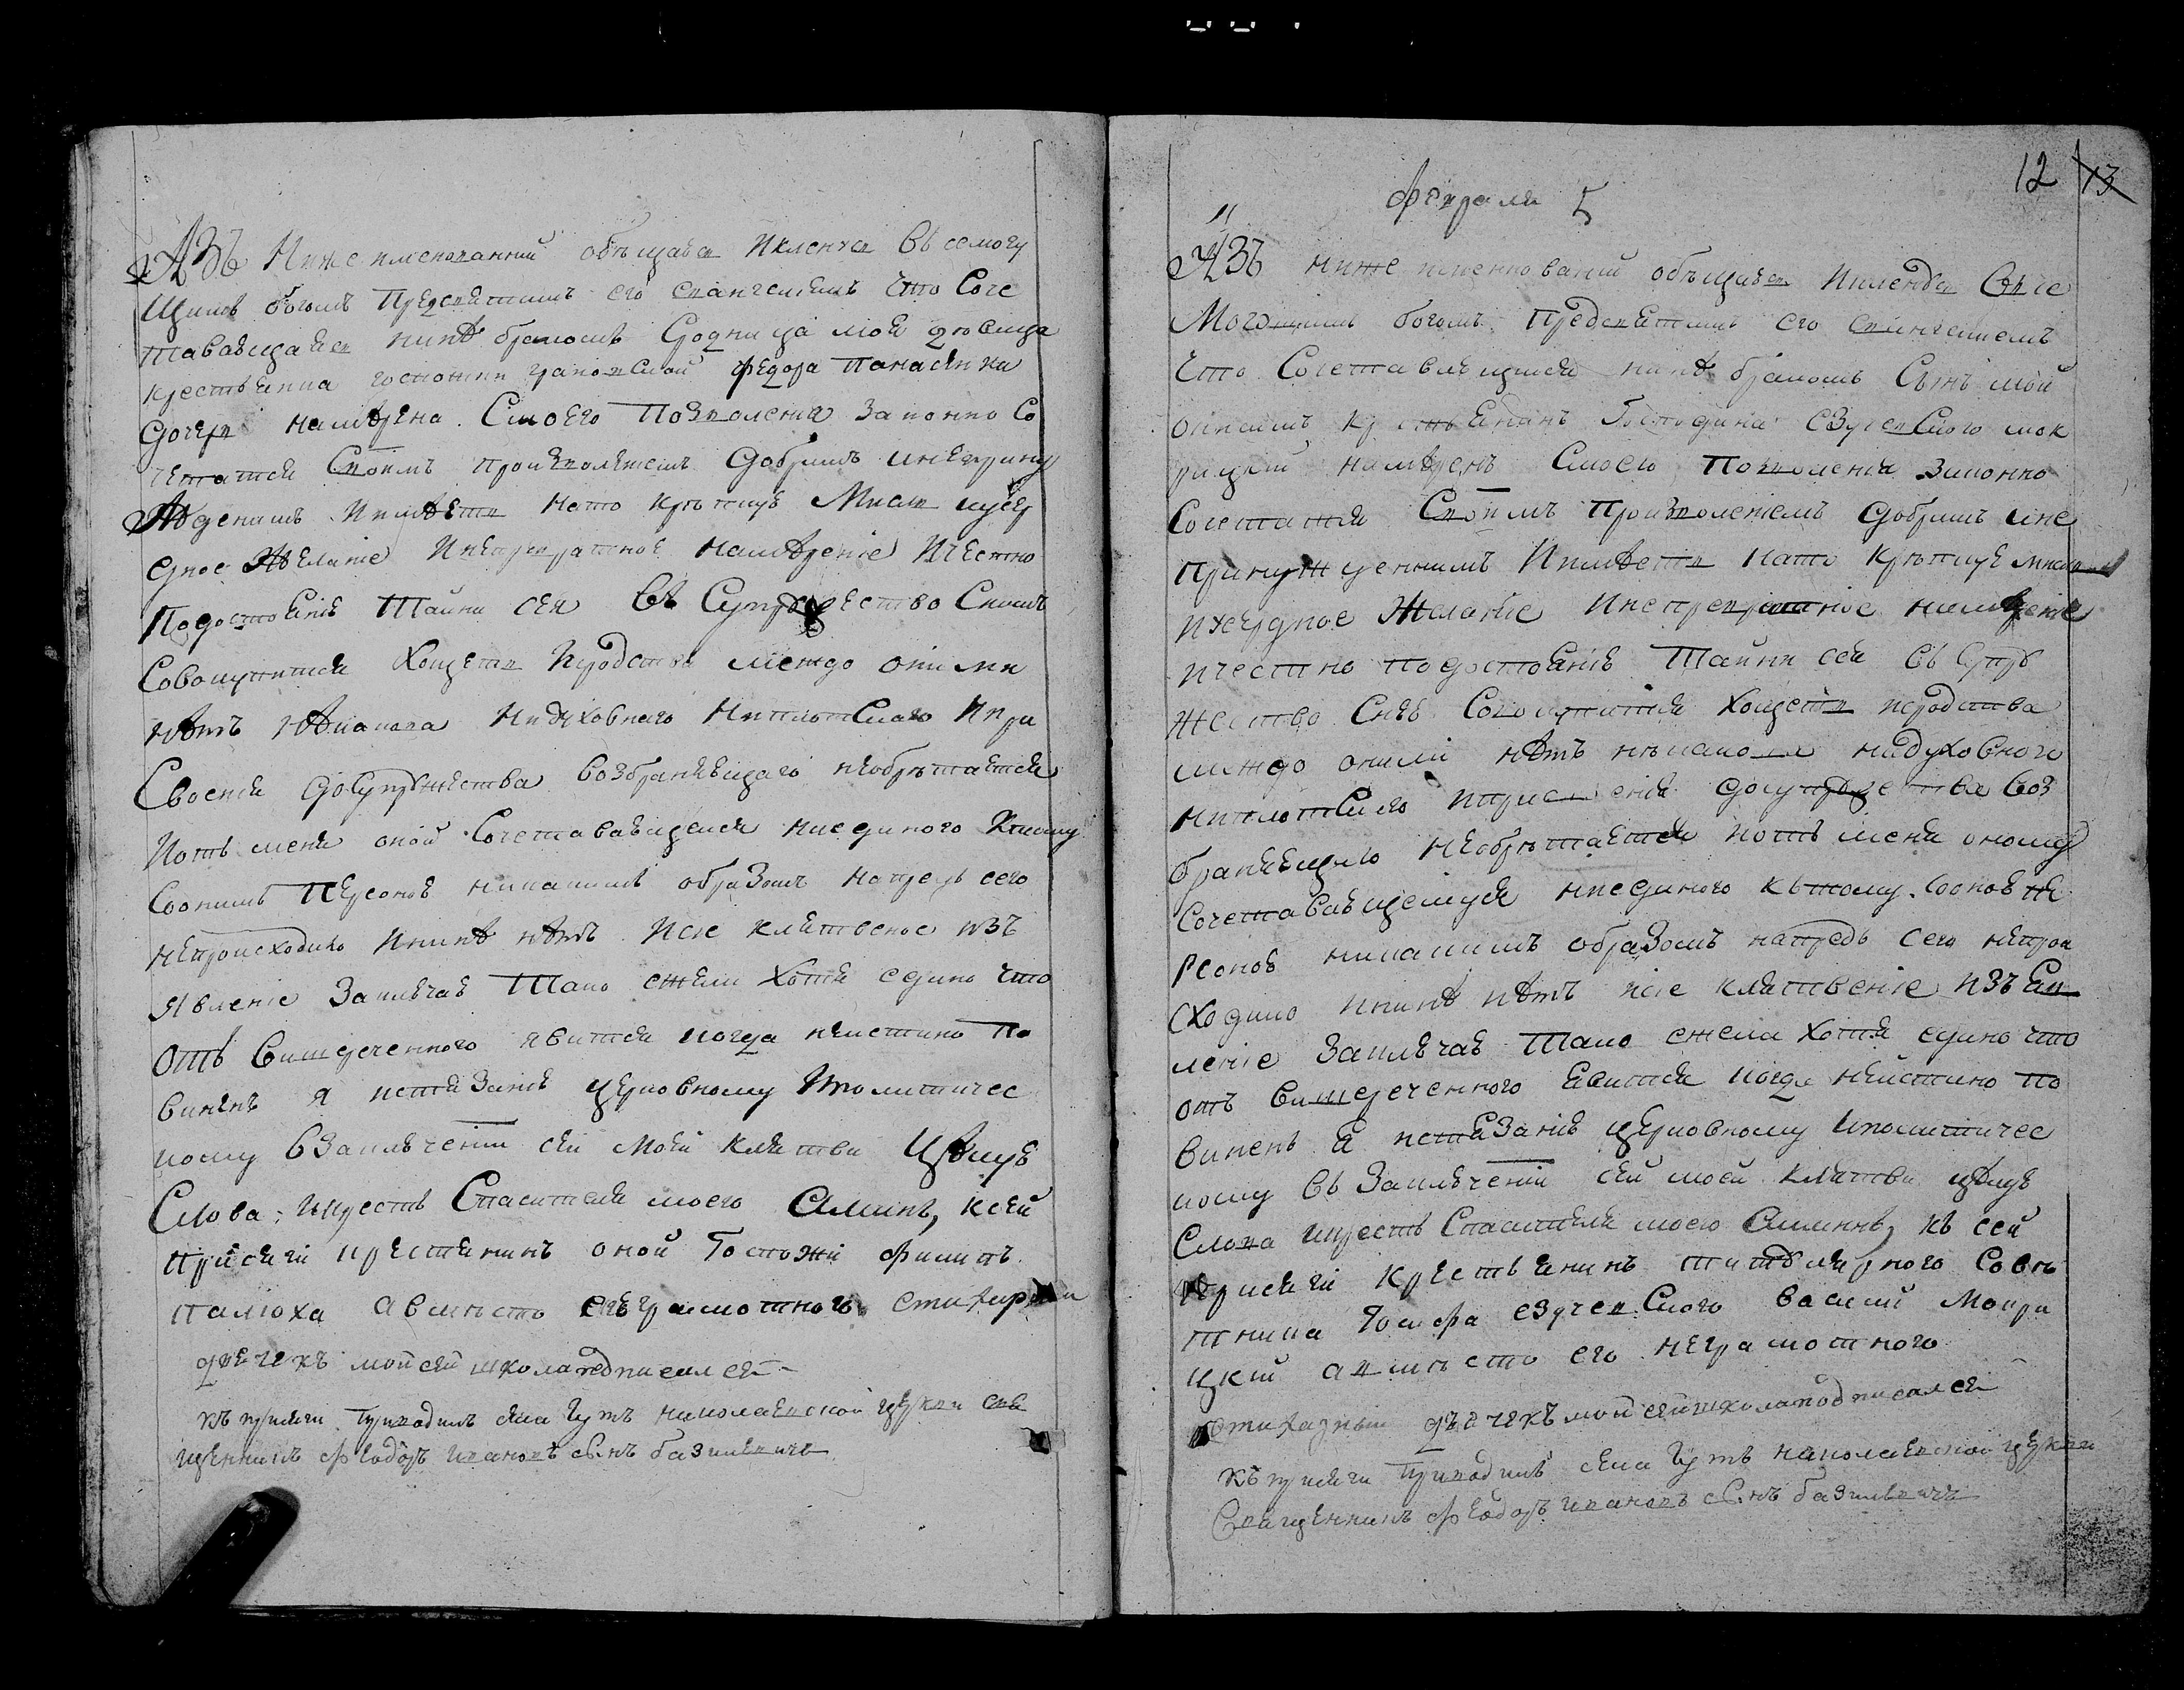 АЗЪ Нижеименованний обѣщаюся Икленуся Всемогу
Щимъ богомъ Предсвятимъ его евангелиемъ Что Соче
таваящаяся нинѣ бракомъ Сродница моя дѣвица
крестьянка госпожи Федора Панасенка
дочерь намѣрена Смоего Позволения Законно Со
четатися Своимъ произволениемъ добримъ инеприну
Жденимъ Имѣетъ нато крѣпкую Мисль иусер
дное Желание Инепревратное намѣрение Ичестно
Подостоянию Тайни сея Въ Супружество Снимъ
Совокупитися Хощетъ Иродства между оними
нѣтъ нѣкакова Нидуховнаго Ниплотскаго Ипри
Своения Досупружества Возбраняющаго необрѣтается
Иотъ меня оной Сочетаваящейся ниединого Ктому
Соонимъ Персонъ никакимъ образомъ напредь сего
непроисходило Ининѣ нѣтъ Исие клятвеное изъ
явление Заключаю Тако ежели Хотя едино что
Отъ Вишереченного явится когда неистино По
виненъ я истязанию церковному Иполитичес
кому ВЗаключении сей Моей клятви Цѣлую
Слова: икрестъ Спасителя моего Аминь, Ксей
присяги крестянинъ оной Госпожи Филипъ
Палюха авместо его неграмотного Стихарни
дячекъ мойсей школа подписался
Къ присяги Приводилъ села Гутъ николаевской церкви Свя
щенникъ Феодоръ ивановъ синъ базилевичъ
12 13
Февраля 5
АЗЪ нижеименнованій обѣщаюся Икленуся Всие
Могощимъ богомъ Предсвятимъ его евангелиемъ
Что Сочетавлящийся нинѣ бракомъ Синъ мой
крестьянинъ Господина Езучевского мок
рицкий намѣренъ Смоего Позволения Законно
Сочетатися Своимъ Произволениемъ добримъ ине
принужденнимъ Имѣетъ Нато Крѣпкую мисль
иусердное Желание Инепревратное намѣрение
ичестно подостоянию Тайни сея въ Супру
жество Снею Совокупитися хощетъ иродства
между оними нѣтъ нѣкакова нидуховнога
ниплотского иприсвоения досупружества Воз
браняющаго необрѣтается иотъ меня оному
Сочетаваящемуся ниединого къ тому Сооною пе
рсоною никакимъ образомъ напредь сего непрои
сходило инине нѣтъ исие клятвение изъяв
ление Заключаю Тако ежели хотя едино что
отъ вишереченного явится когда неистино по
виненъ я истязанию церковному Иполитичес
кому въ Заключении сей моей клятви цѣлую
Слова икрестъ Спасителя моего Аминнь, къ сей
присяги Крестьянинъ титулярного Совѣ
тника Иосифа езучевского василий Мокри
цкий авместо его неграмотного
Стихарний дячекъ мойсейшкола подписался
Къ присяги Приводилъ села Гутъ николаевской церкви
Священникъ Феодоръ ивановъ синъ базилевичъ